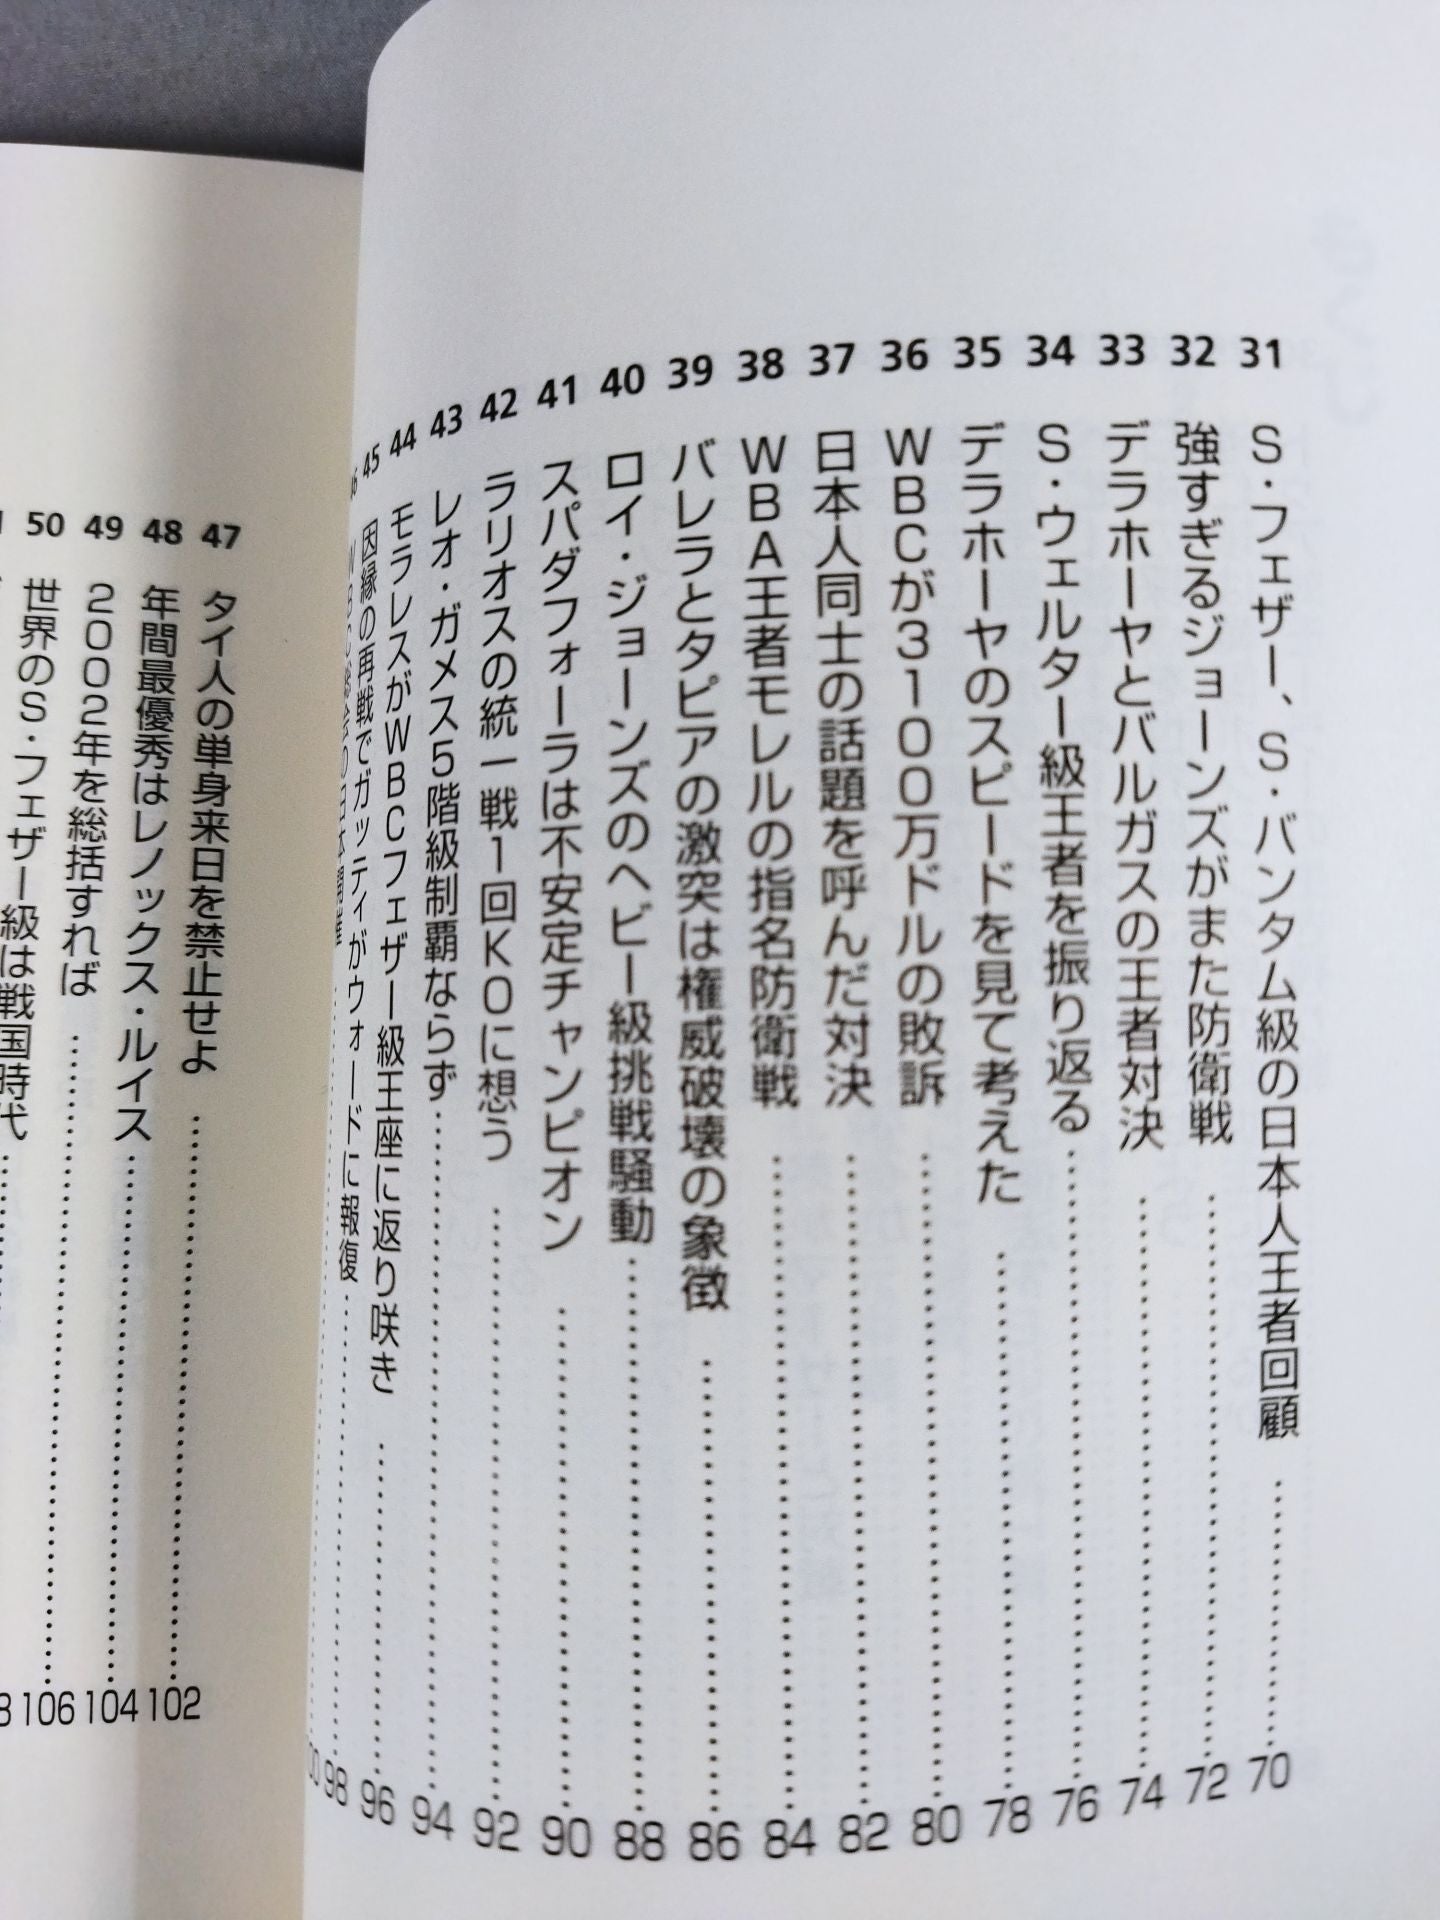 31 S・フェザー、S・バンタム級の日本人王者回顧 70
32 強すぎるジョーンズがまた防衛戦 72
33 デラホーヤとバルガスの王者対決 74
34 S・ウェルター級王者を振り返る 76
35 デラホーヤのスピードを見て考えた 78
36 WBCが3100万ドルの敗訴 80
37 日本人同士の話題を呼んだ対決 82
38 WBA王者モレルの指名防衛戦 84
39 バレラとタピアの激突は権威破壊の象徴 86
40 ロイ・ジョーンズのヘビー級挑戦騒動 88
41 スパダフォーラは不安定チャンピオン 90
42 ラリオスの統一戦1回KOに想う 92
43 レオ・ガメス5階級制覇ならず 94
44 モラレスがWBCフェザー級王座に返り咲き 96
45 因縁の再戦でガッティがウォードに報復 98
日本開催
47 タイ人の単身来日を禁止せよ 102
48 年間最優秀はレノックス・ルイス 104
49 2002年を総括すれば 106
50 世界のS・フェザー級は戦国時代